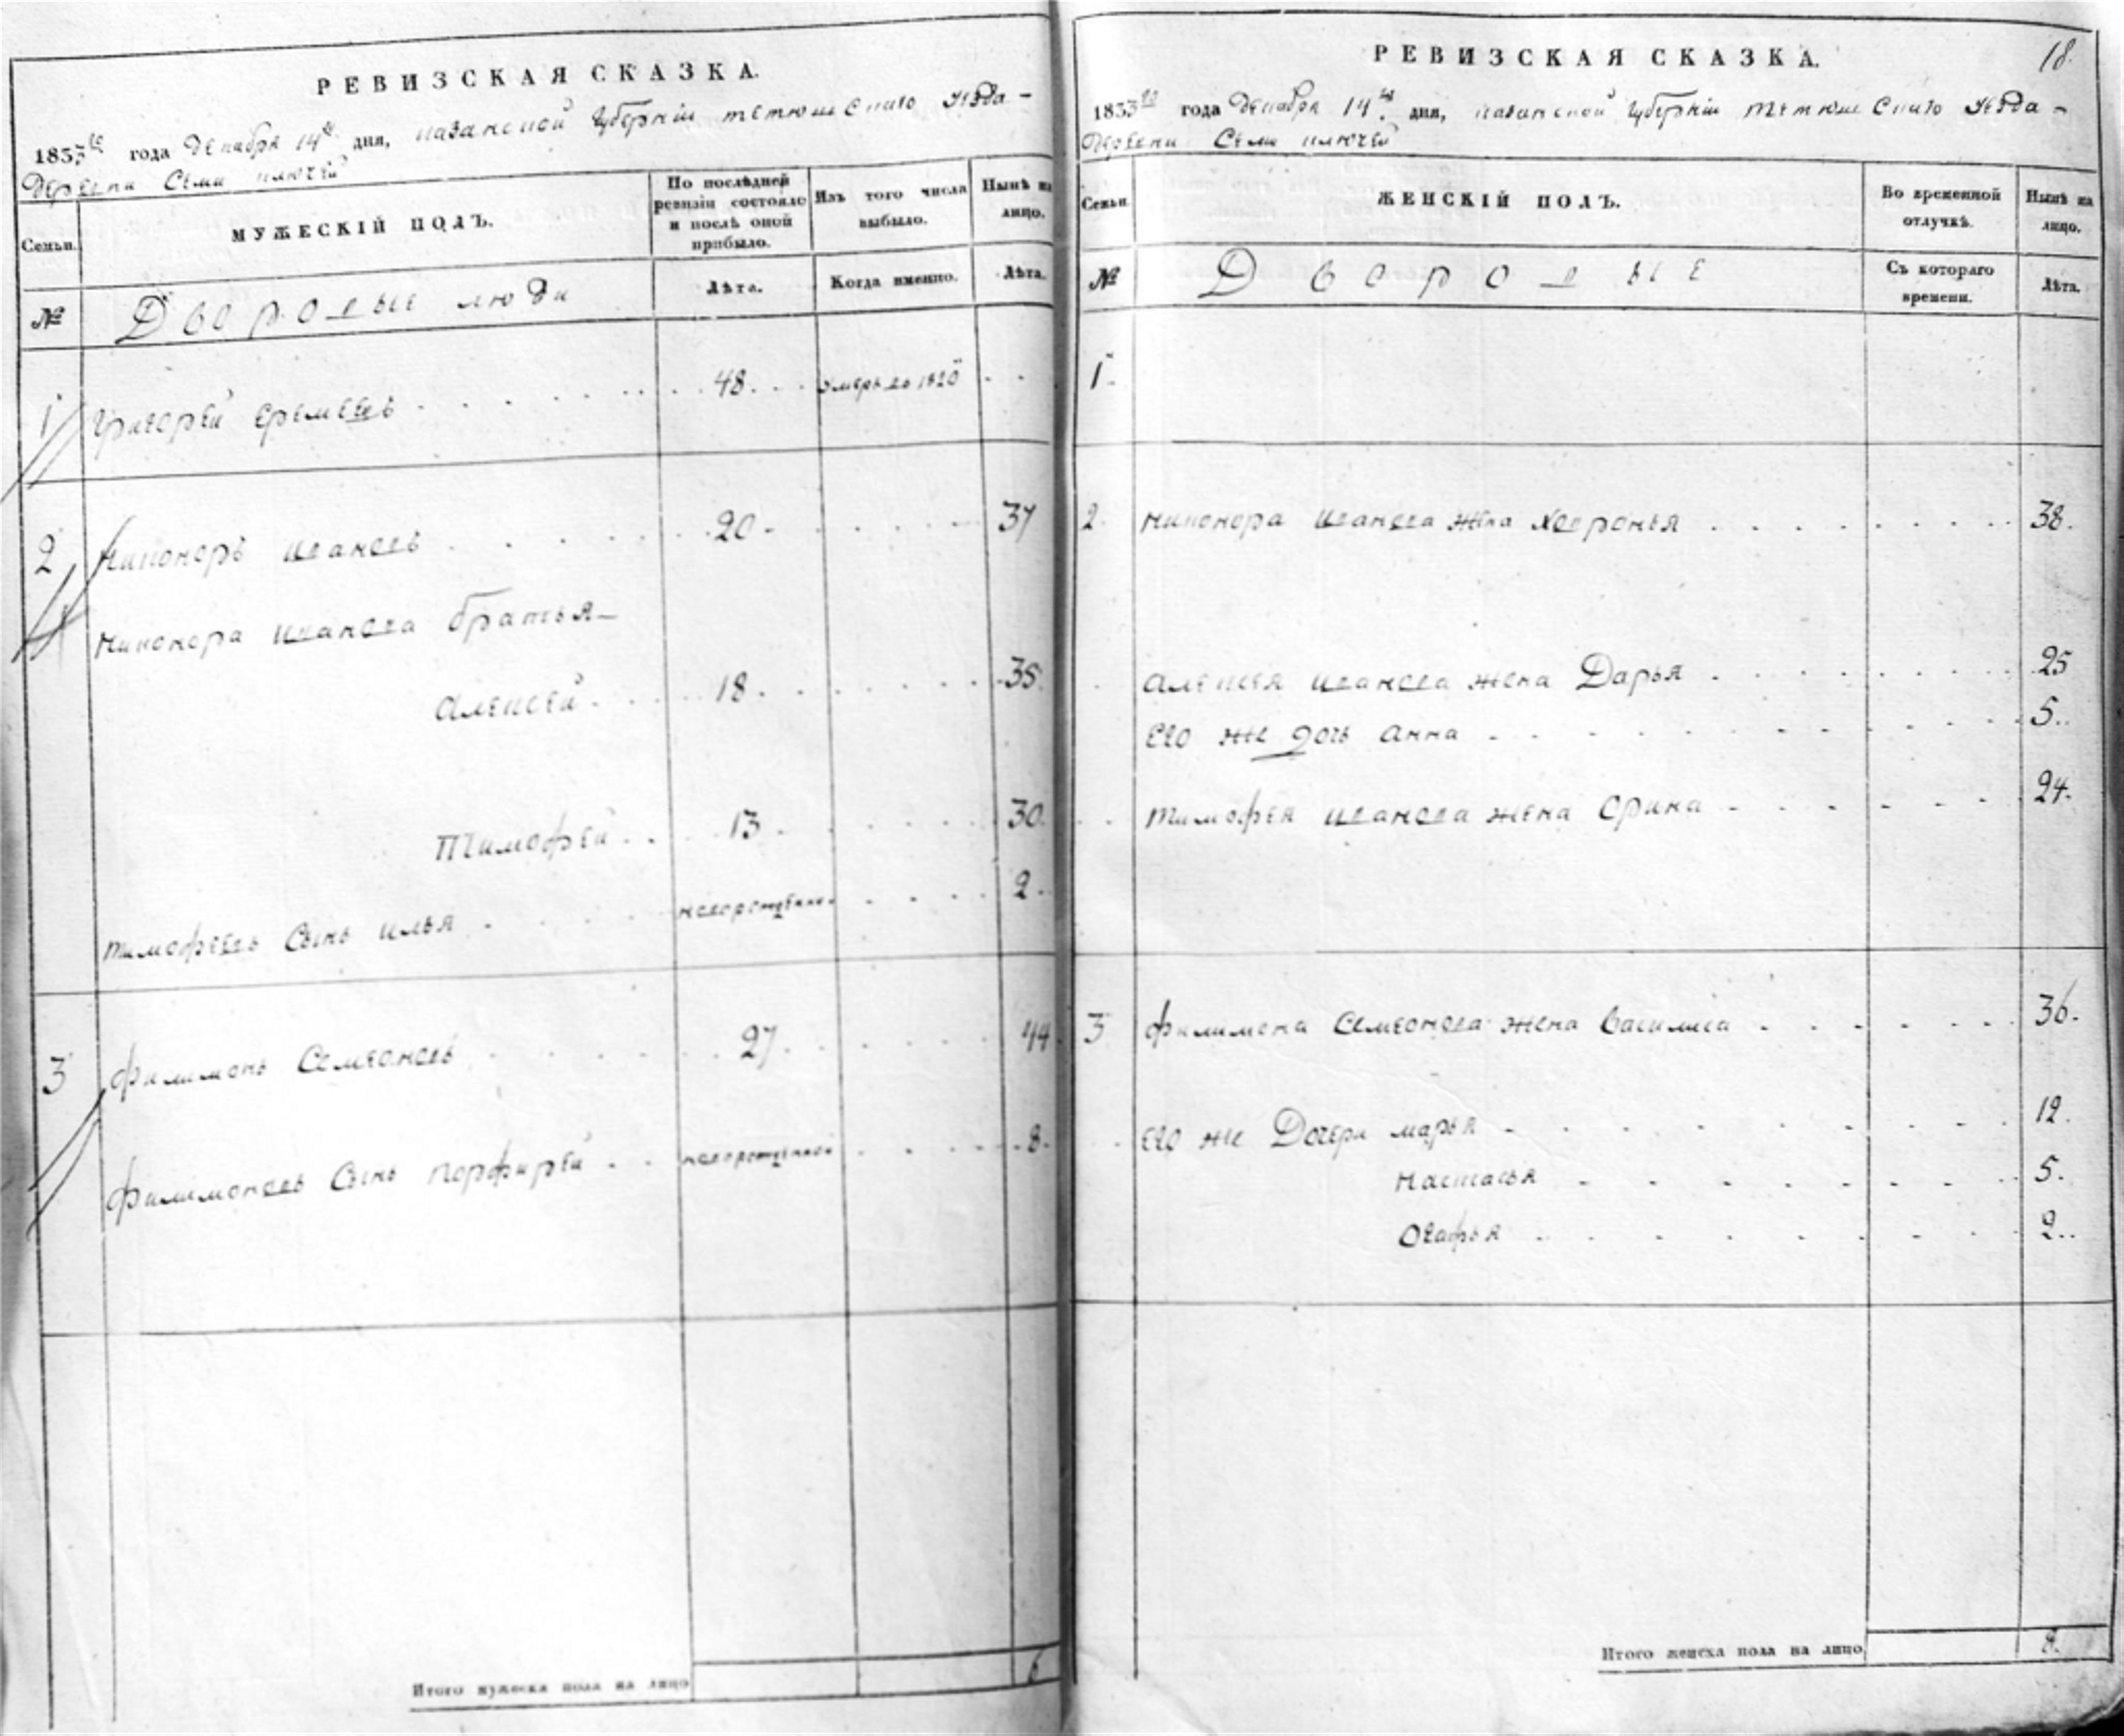 РЕВИЗСКАЯ СКАЗКА.
1833го года Декабря 14го дня, казанской Губернiи тетюшскаго Уезда-
Деревни Семи ключей
Семьи. МУЖЕСКІЙ ПОЛЪ. По послѣдней ревизіи состояло и послѣ оной прибыло. Изъ того числа выбыло. Нынѣ на лицо.
№ Дворовые люди Лѣта. Когда именно. Лѣта.
1 Григорей Еремеевъ 48. умеръ въ 1820м
2 Никоноръ Ивановъ 20. 37
Никонора Иванова братья-
Алексей 18. 35.
Тимофей 13. 30.
Тимофеевъ Сынъ Илья новорожденн. 2.
3 Филимонъ Семеоновъ 27. 44
Филимоновъ Сынъ Порфирей новорожденной 8.
Итого мужеска пола на лицо 6
РЕВИЗСКАЯ СКАЗКА. 18.
1833го года Декабря 14го дня, казанской Губернiи тетюшскаго Уезда-
Деревни Семи ключей
Семьи. ЖЕНСКІЙ ПОЛЪ. Во временной отлучкѣ. Нынѣ на лицо.
№ Дворовые Съ котораго времени. Лѣта.
1.
2. Никонора Иванова жена Хевронья 38.
Алексея Иванова жена Дарья 25
Его же дочь Анна 5.
Тимофея Иванова жена Орина 24.
3 Филимона Семеонова жена Василиса 36.
Его же Дочери марья 12.
Настасья 5.
Огафья 2.
Итого женска пола на лицо 8.